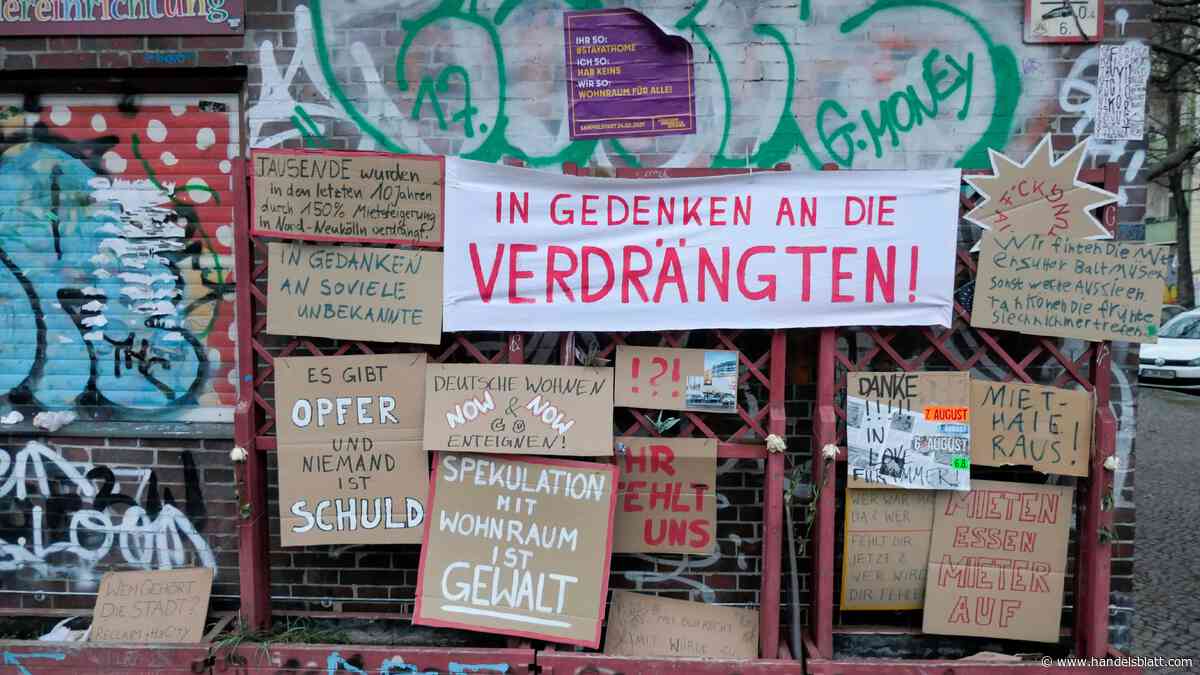 ereinrichtung
IHR SO:
#STAYATHOME
ICH SO:
HAB KEINS
WIR SO:
WOHNRAUM FÜR ALLE!
17.
G. MONEY
TAUSENDE wurden
in den letzten 10 Jahren
durch 150% Mietsteigerung
in Nord-Neukölln verdrängt.
IN GEDANKEN
AN SOVIELE
UNBEKANNTE
IN GEDENKEN AN DIE
VERDRÄNGTEN!
Wir finden Die
sonst
ES GIBT
OPFER
UND
NIEMAND
IST
SCHULD
DEUTSCHE WOHNEN
NOW & NOW
ENTEIGNEN!
!?!
IHR
FEHLT
UNS
SPEKULATION
MIT
WOHNRAUM
IST
GEWALT
DANKE
!!!!!
7. AUGUST
6. AUGUST
6.8.
IN
LOVE
FUR IMMER
MIET-
HAIE
RAUS!
WER WAR
DA? WER
FEHLT DIR
JETZT?
WER WIRD
DIR FEHLEN
MIETEN
ESSEN
MIETER
AUF
WEM GEHÖRT
DIE STADT?
RECLAIM the CITY
© www.handelsblatt.com